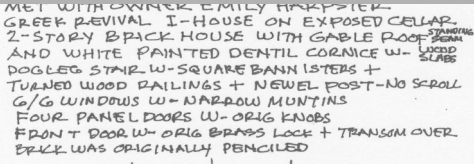 MET WITH OWNER EMILY HARPSTER
GREEK REVIVAL I-HOUSE ON EXPOSED CELLAR
2-STORY BRICK HOUSE WITH GABLE ROOF STANDING SEAM
AND WHITE PAINTED DENTIL CORNICE W- WOOD SLABS
DOGLEG STAIR W-SQUARE BANNISTERS +
TURNED WOOD RAILINGS + NEWEL POST-NO SCROLL
6/6 WINDOWS W-NARROW MUNTINS
FOUR PANEL DOORS W-ORIG KNOBS
FRONT DOOR W- ORIG BRASS LOCK + TRANSOM OVER
BRICK WAS ORIGINALLY PENCILED